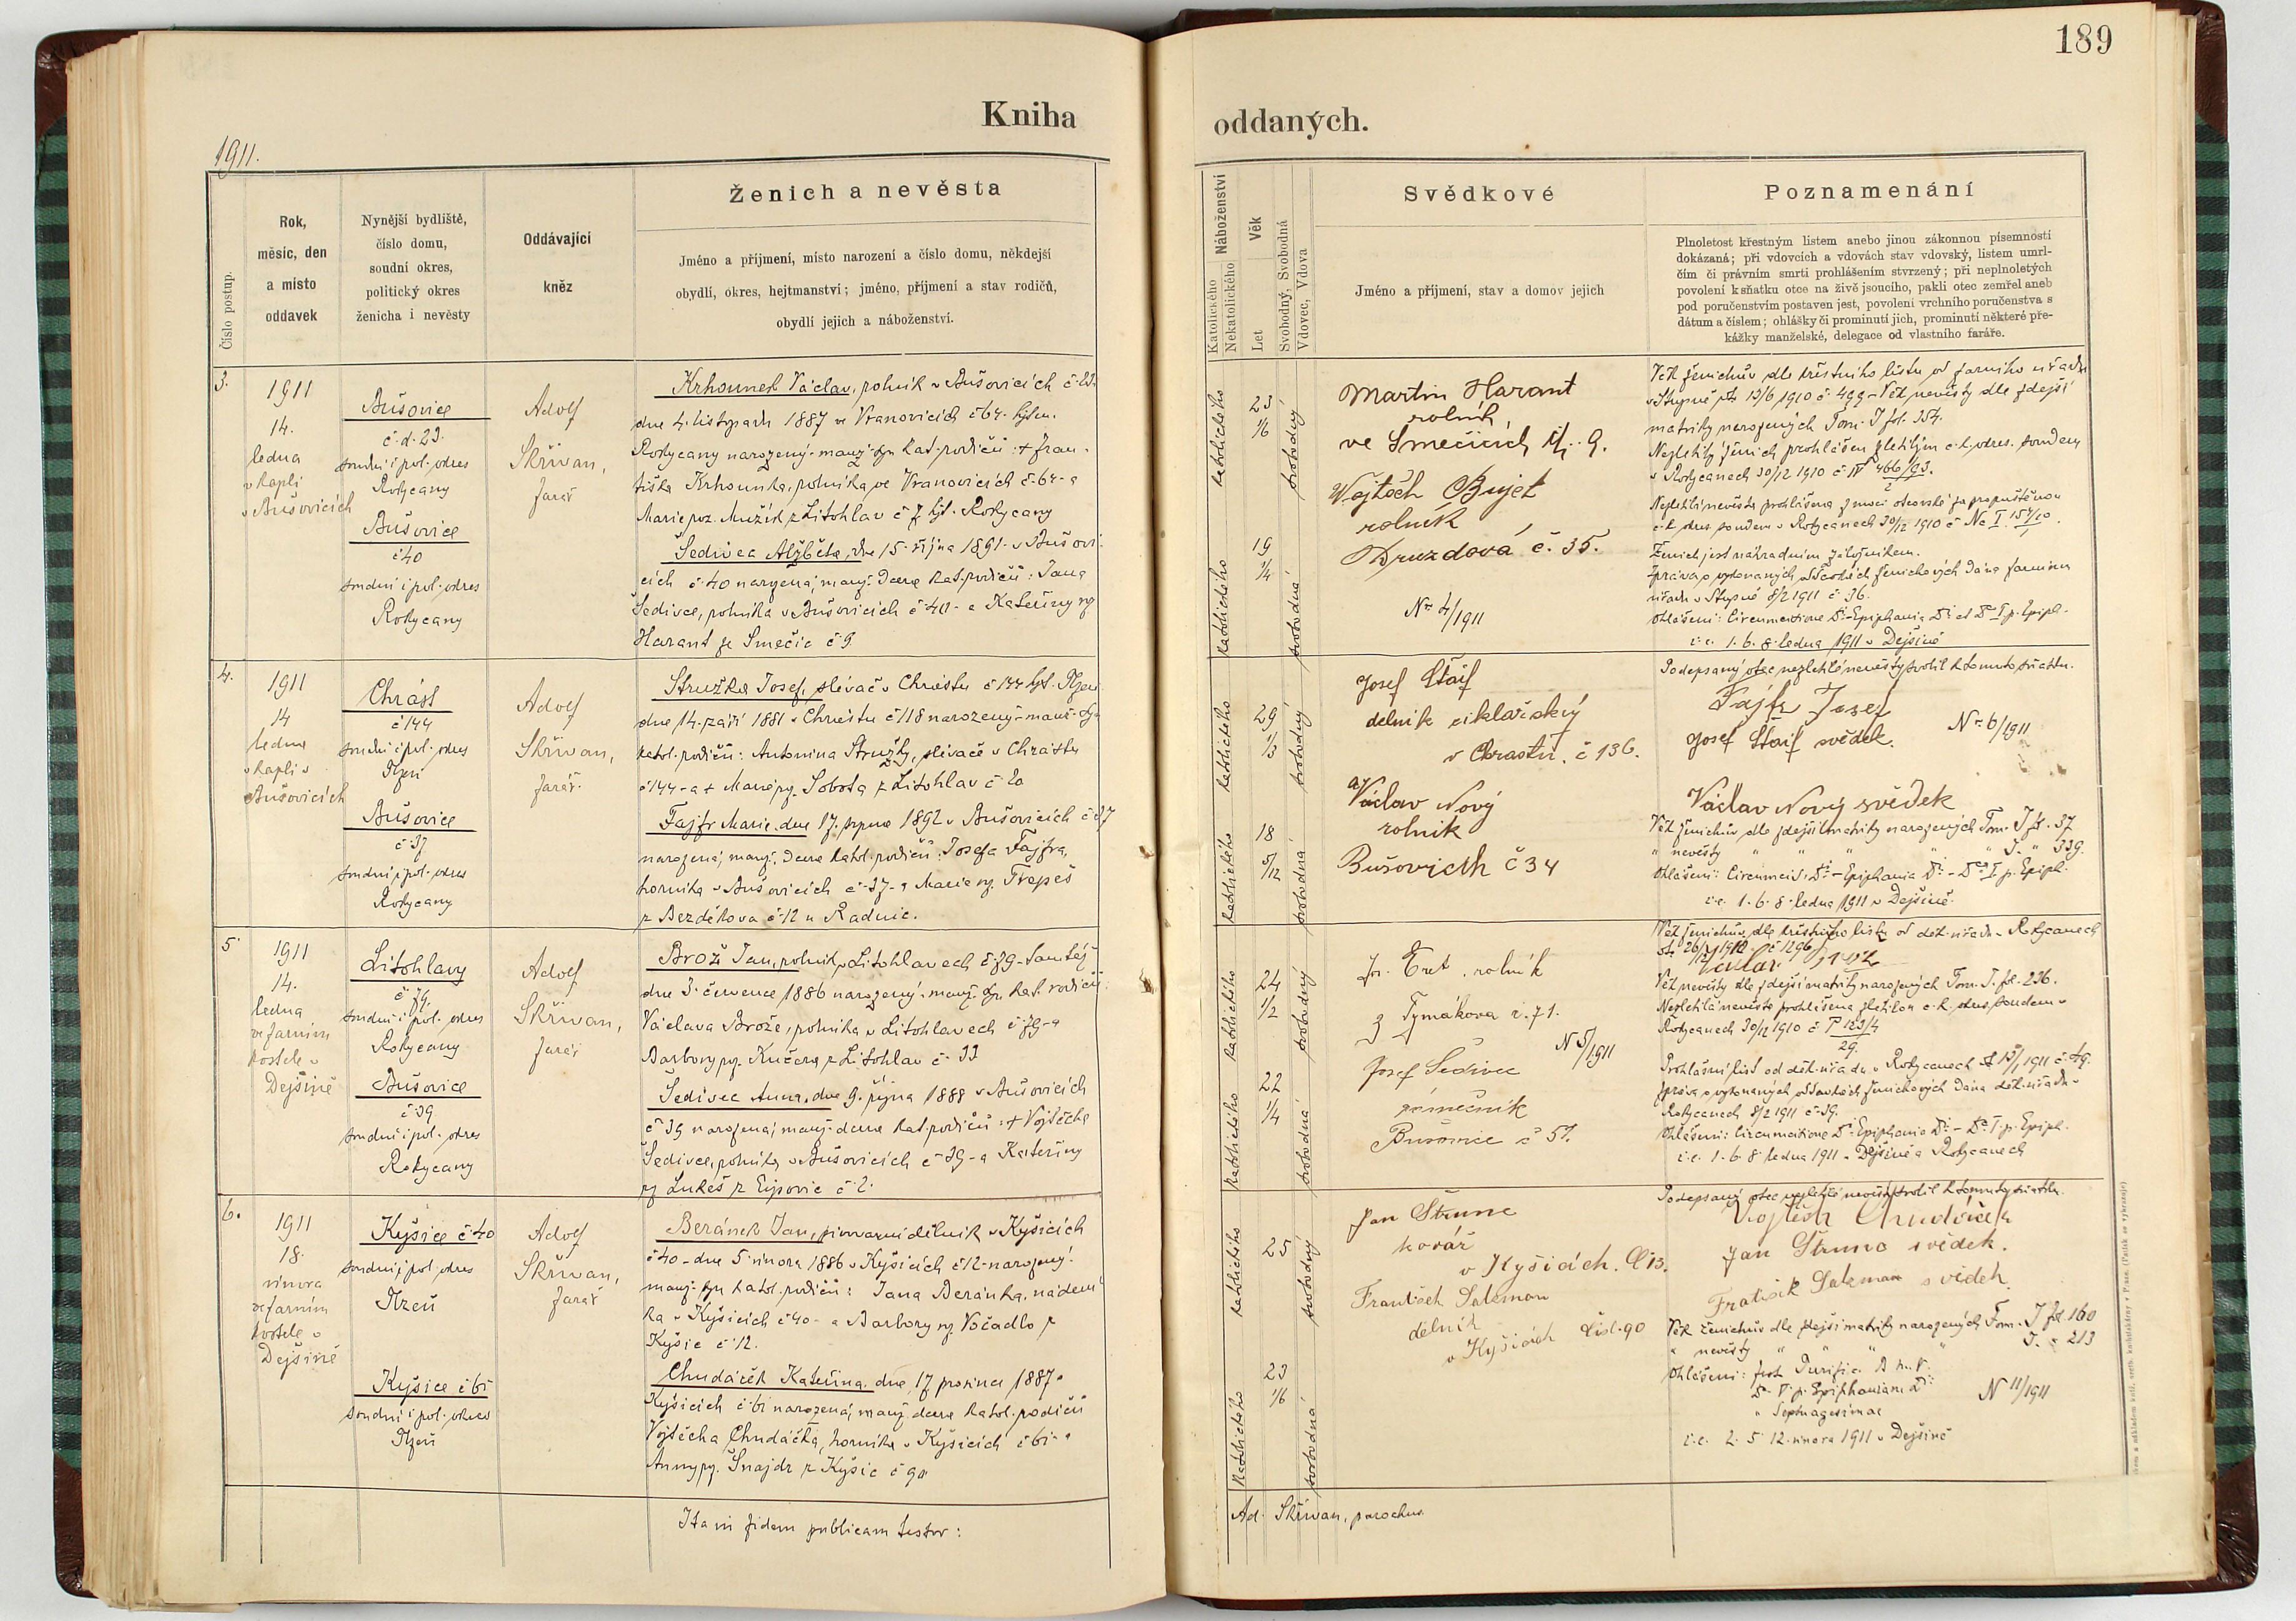 189
Kniha
oddaných.
1911.
Číslo postup.
Rok,
měsíc, den
a místo
oddavek
Nynější bydliště,
číslo domu,
soudní okres,
politický okres
ženicha i nevěsty
Oddávající
kněz
Ženich a nevěsta
Jméno a příjmení, místo narození a číslo domu, někdejší
obydlí, okres, hejtmanství; jméno, příjmení a stav rodičů,
obydlí jejich a náboženství.
Náboženství
Katolického
Nekatolického
Věk
Let
Svobodný, Svobodná
Vdovec, Vdova
Svědkové
Jméno a příjmení, stav a domov jejich
Poznamenání
Plnoletost křestným listem anebo jinou zákonnou písemností
dokázaná; při vdovcích a vdovách stav vdovský, listem umrl-
čím či právním smrti prohlášením stvrzený; při neplnoletých
povolení k sňatku otce na živě jsoucího, pakli otec zemřel aneb
pod poručenstvím postaven jest, povolení vrchního poručenstva s
dátum a číslem; ohlášky či prominutí jich, prominutí některé pře-
kážky manželské, delegace od vlastního faráře.
3.
1911
14.
ledna
v kapli
v Bušovicích
Bušovice
č. d. 23.
soudní i pol. okres
Rokycany
Bušovice
č 40
soudní i pol. okres
Rokycany
Adolf
Skřivan,
farář
Krhounek Václav, rolník v Bušovicích č 23.
dne 4. listopadu 1887 ve Vranovicích č 64. hjtm.
Rokycany narozený. manž. syn kat. rodičů: + Fran-
tiška Krhounka, rolníka ve Vranovicích č 64 - a
Marie roz. Mužík z Litohlav č 7 hjt. Rokycany
Šedivec Alžběta, dne 15. října 1891 v Bušovi-
cích č 40 narozená, manž. dcera kat. rodičů: Jana
Šedivce, rolníka v Bušovicích č 40 - a Kateřiny rz
Harant ze Smečic č 9.
katolického
23
1/6
svobodný
katolického
19
1/4
svobodná
Martin Harant
rolník
ve Smečicích čí. 9.
Wojtěch Bujet
rolník
Druzdová č. 35.
Nro 4/1911
Věk ženichův dle křestního listu od farního úřadu
v Stupně dto 13/6 1910 č 499 - Věk nevěsty dle zdejší
matriky narozených Tom. I fol. 354.
Nezletilý ženich prohlášen zletilým c. k. okres. soudem
v Rokycanech 30/12 1910 č IV 466/93.
2
Nezletilá nevěsta prohlášena z moci otcovské za propuštěnou
c. k. okres. soudem v Rokycanech 30/12 1910 č Nc I 154/10.
Ženich jest náhradním záložníkem.
Zpráva o vykonaných ohláškách ženichových dána farnímu
úřadu v Stupně 8/2 1911 č 36.
Ohlášení: Circumcisione Di - Epiphania Di et D I p. Epiph.
i. e. 1. 6. 8. ledna 1911 v Dejšině
4.
1911
14
ledna
v kapli v
Bušovicích
Chrást
č 144
soudní i pol. okres
Plzeň
Bušovice
č 37
soudní i pol. okres
Rokycany
Adolf
Skřivan,
farář.
Stružka Josef, slévač v Chrástu č 144 hjt. Plzeň
dne 14. září 1881 v Chrástu č 118 narozený - manž. syn
katol. rodičů: Antonína Stružky, slévače v Chrástu
č 144 - a + Marie rz. Sobota z Litohlav č 20
Fajfr Marie, dne 17. srpna 1892 v Bušovicích č 37
narozená, manž. dcera katol. rodičů: Josefa Fajfra,
horníka v Bušovicích č 37 - a Marie rz. Trepeš
z Bezděkova č 12 u Radnic.
katolického
29
1/3
svobodný
katolického
18
5/12
svobodná
Josef Štaif
dělník ciklařský
v Chrástu. č 136.
a
Václav Nový
rolník
Bušovicích č 34
Podepsaný otec nezletilé nevěsty svolil k tomuto sňatku.
Fajfr Josef
Josef Štaif svědek.
Nro 6/1911
Václav Nový svědek
Věk ženichův dle zdejší matriky narozených Tom. I fol. 37
" nevěsty " " " " " I. " 339.
Ohlášení: Circumcis. Di - Epiphania Di - Dca I p. Epiph.
i. e. 1. 6. 8. ledna 1911 v Dejšině.
5
1911
14.
ledna
ve farním
kostele v
Dejšině
Litohlavy
č 79.
soudní i pol. okres
Rokycany
Bušovice
č 39.
soudní i pol. okres
Rokycany
Adolf
Skřivan,
farář
Brož Jan, rolník v Litohlavech č 79 - tamtéž
dne 3. července 1886 narozený. manž. syn kat. rodičů:
Václava Brože, rolníka v Litohlavech č 79 - a
Barbory rz. Kučera z Litohlav č 33
Šedivec Anna, dne 9. října 1888 v Bušovicích
č 39 narozená, manž. dcera kat. rodičů: + Vojtěcha
Šedivce, rolníka v Bušovicích č 39 - a Kateřiny
rz Lukeš z Ejpovic č 2.
katolického
24
1/2
svobodný
katolického
22
1/4
svobodná
Jos. Eret. rolník
z Tymákova č. 71.
N 5/1911
Josef Šedivec
zámečník
Bušovice č 51.
Věk ženichův dle křestního listu od děk. úřadu v Rokycanech
Věk nevěsty dle zdejší matriky narozených Tom. I. fol. 296.
Nezletilá nevěsta prohlášena zletilou c. k. okres. soudem v
Rokycanech 30/12 1910 č P 123/4
29.
Prohlášní list od děk. úřadu v Rokycanech dto 13/1 1911 č. 49.
Zpráva o vykonaných oddavkách ženichových dána děk. úřadu v
Rokycanech 8/2 1911 č 39.
Ohlášení: Circumcisione Di. Epiphania Di - Dca I. p. Epiph.
i. e. 1. 6. 8. ledna 1911 v Dejšině a Rokycanech
6.
1911
18.
února
ve farním
kostele v
Dejšině
Kyšice č 40
soudní i pol. okres
Plzeň
Kyšice č 61
soudní i pol. okres
Plzeň
Adolf
Skřivan,
farář
Beránek Jan, pivovarní dělník v Kyšicích
č 40 - dne 5. února 1886 v Kyšicích č 12 - narozený.
manž. syn katol. rodičů: Jana Beránka, nádení
ka v Kyšicích č 40 - a Barbory rz. Vočadlo z
Kyšic č 12.
Chudáček Kateřina, dne 17 prosince 1887 v
Kyšicích č 61 narozená, manž. dcera katol. rodičů
Vojtěcha Chudáčka, horníka v Kyšicích č 61 - a
Anny rz. Šnajdr z Kyšic č 90
katolického
25
svobodný
katolického
23
1/6
svobodná
Jan Štrunc
kovář
v Kyšicích. č 13.
František Salzman
dělník
v Kyšicích čísl. 90
Podepsaný otec nezletilé nevěsty svolil k tomuto sňatku.
Vojtěch Chudáček
Jan Štrunc svědek.
Fratisik Salzman svědek
Věk ženichův dle zdejší matriky narozených Tom. I fol. 160
" nevěsty " " " " I. " 213
Ohlášení: fest. Purific. B. M. V.
D. V. p. Epiphaniam D.
" Septuagesimae
N 11/1911
i. e. 2. 5. 12. února 1911 v Dejšině
Ita in fidem publicam testor:
Ad. Skřivan, parochus.